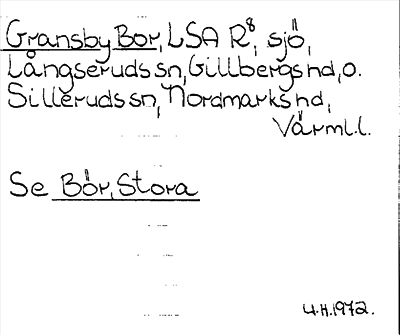 Gransby Bor, LSA R8, sjö,
Långseruds sn, Gillbergs hd, o.
Silleruds sn, Nordmarks hd,
Värml.l.
Se Bör, Stora
U.H.1972.